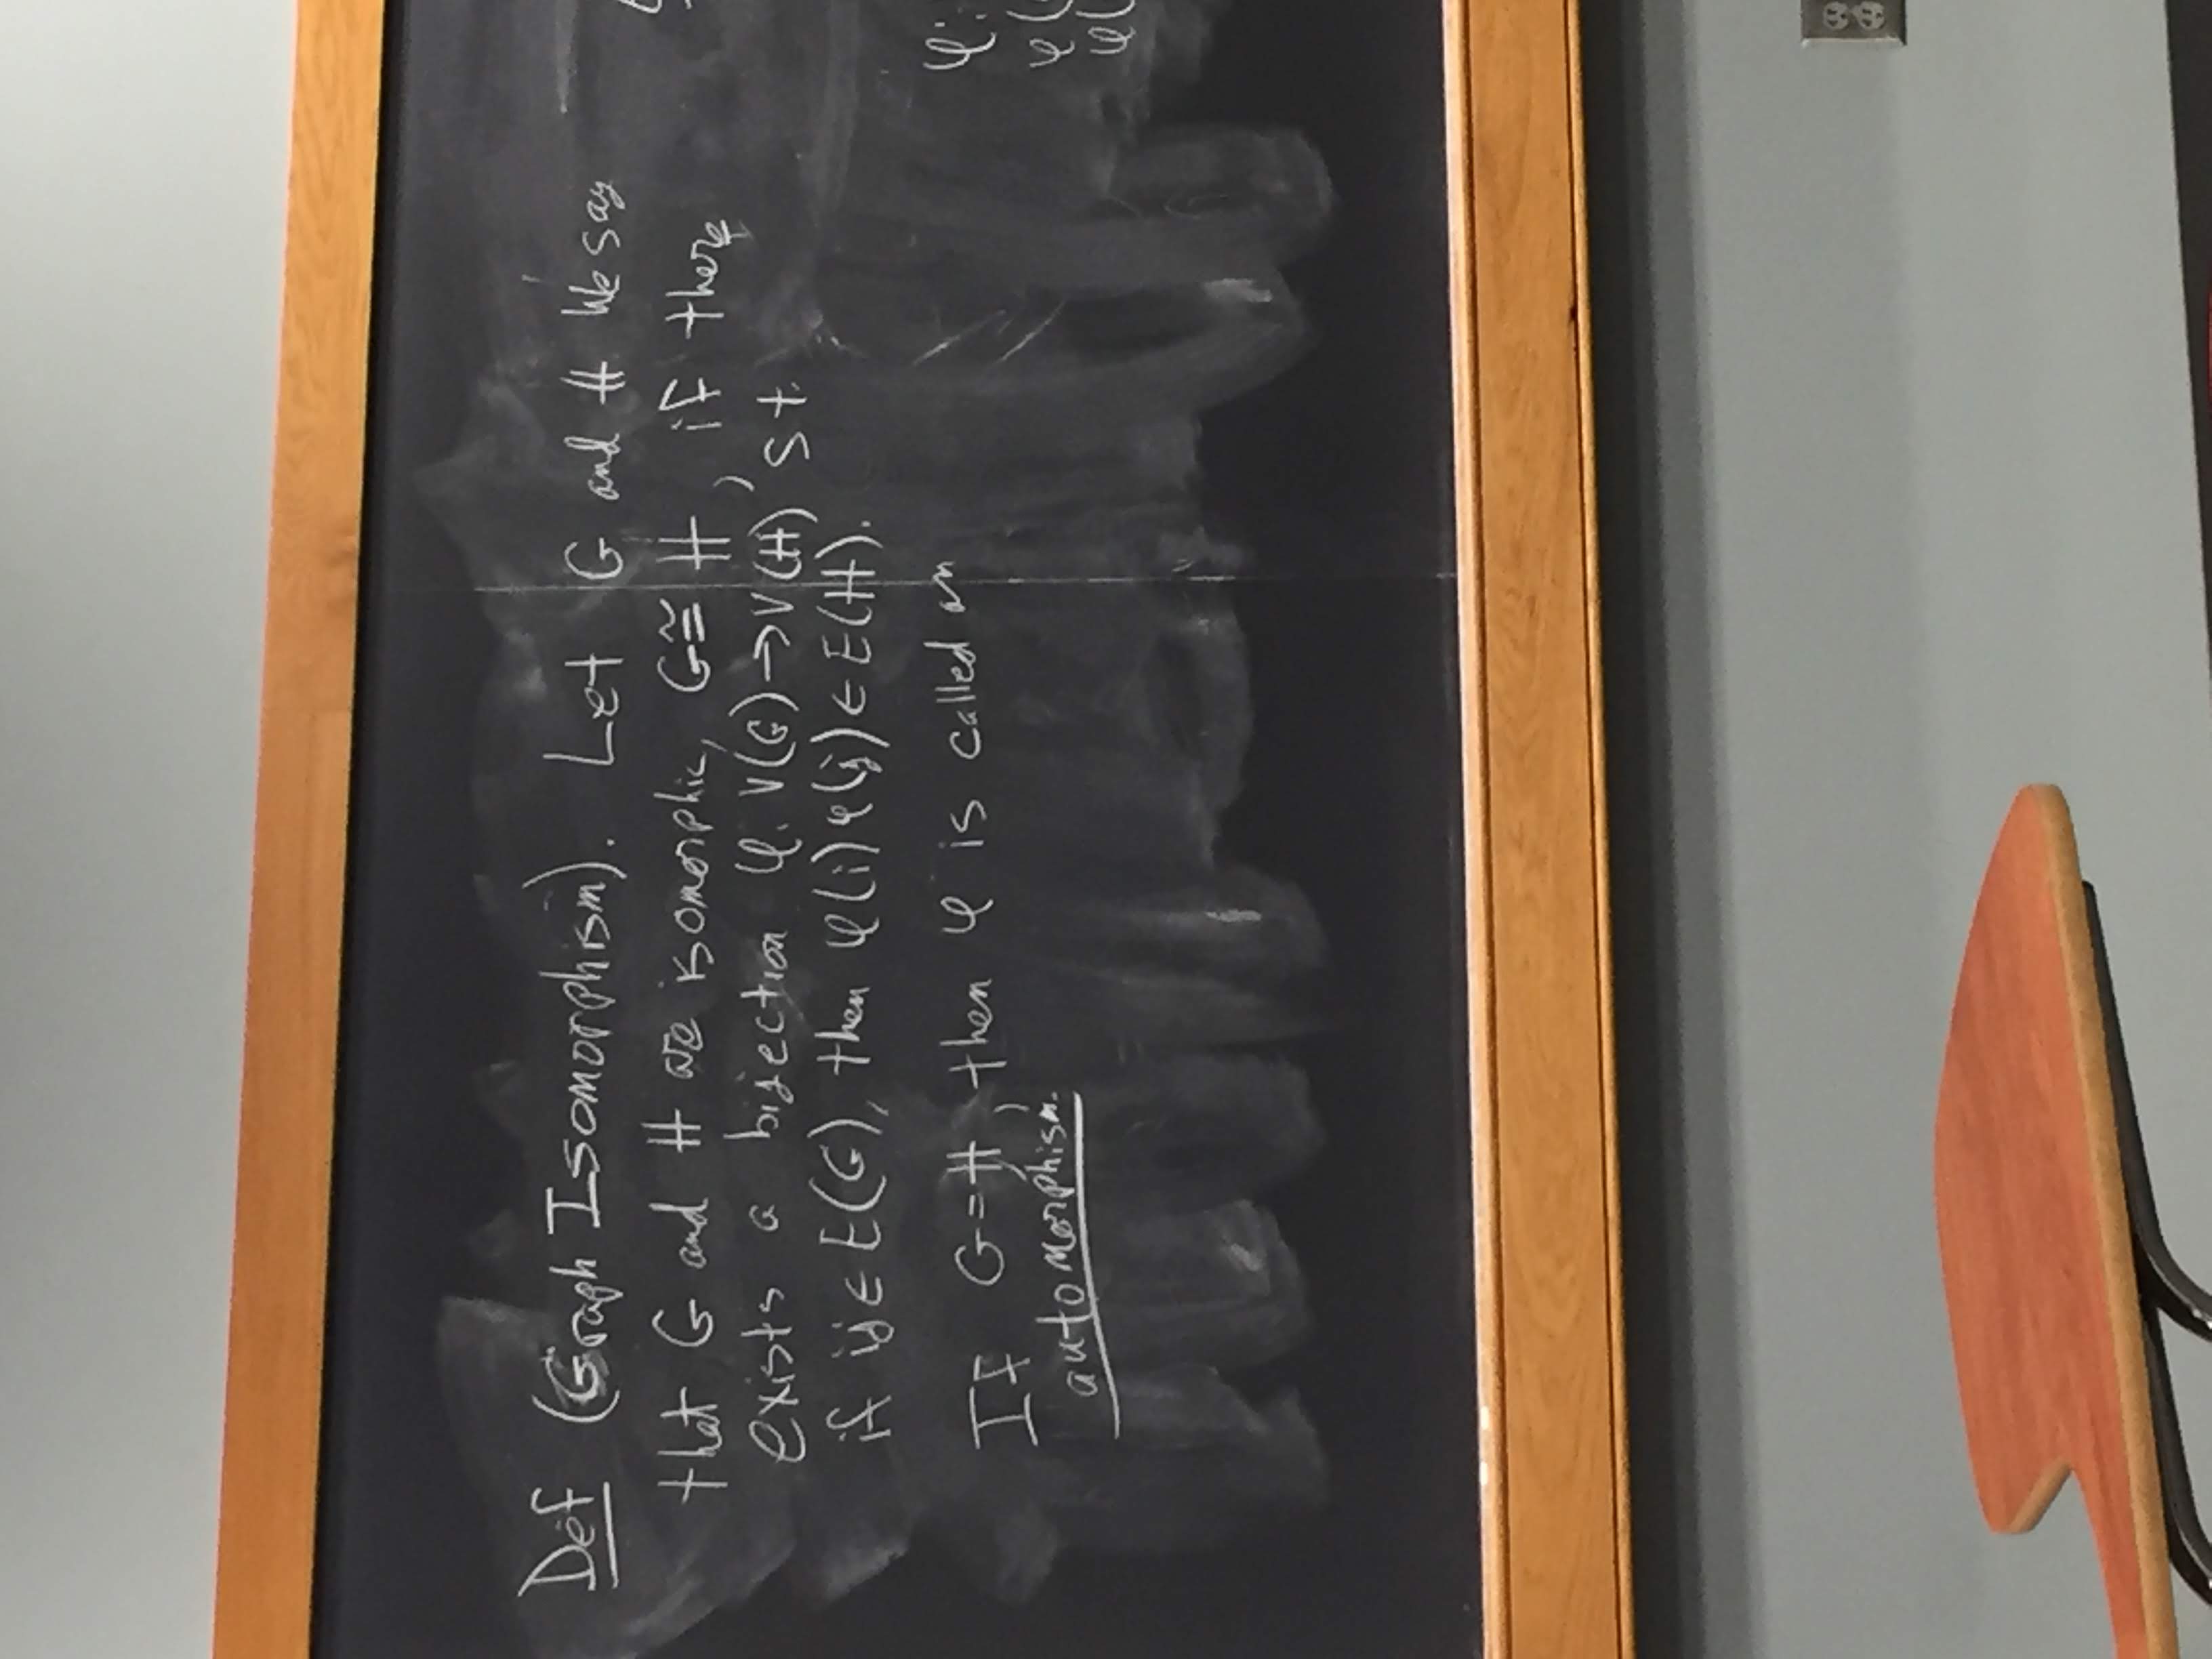 Def (Graph Isomorphism). Let G and H We say
that G and H are isomorphic, G ≅ H, if there
exists a bijection φ: V(G) → V(H) s.t.
if ij ∈ E(G), then φ(i)φ(j) ∈ E(H).
If G = H, then φ is called an
automorphism.
φ:
φ(
φ(